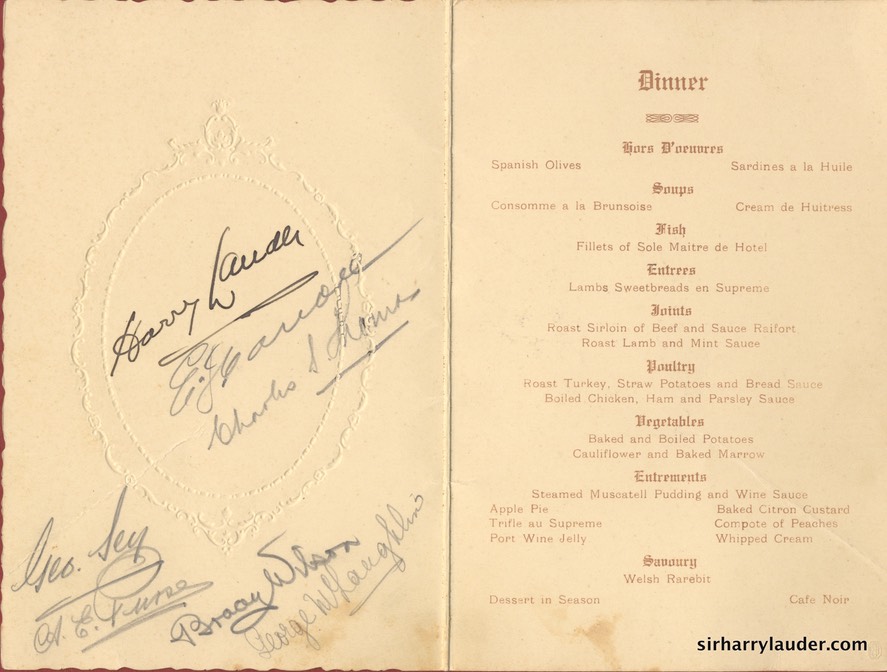 Harry Lauder
Charles S
Geo.
A. E. Purse
Wilson
George McLaughlin
Dinner
Hors D'oeuvres
Spanish Olives Sardines a la Huile
Soups
Consomme a la Brunsoise Cream de Huitress
Fish
Fillets of Sole Maitre de Hotel
Entrees
Lambs Sweetbreads en Supreme
Joints
Roast Sirloin of Beef and Sauce Raifort
Roast Lamb and Mint Sauce
Poultry
Roast Turkey, Straw Potatoes and Bread Sauce
Boiled Chicken, Ham and Parsley Sauce
Vegetables
Baked and Boiled Potatoes
Cauliflower and Baked Marrow
Entrements
Steamed Muscatell Pudding and Wine Sauce
Apple Pie Baked Citron Custard
Trifle au Supreme Compote of Peaches
Port Wine Jelly Whipped Cream
Savoury
Welsh Rarebit
Dessert in Season Cafe Noir
sirharrylauder.com